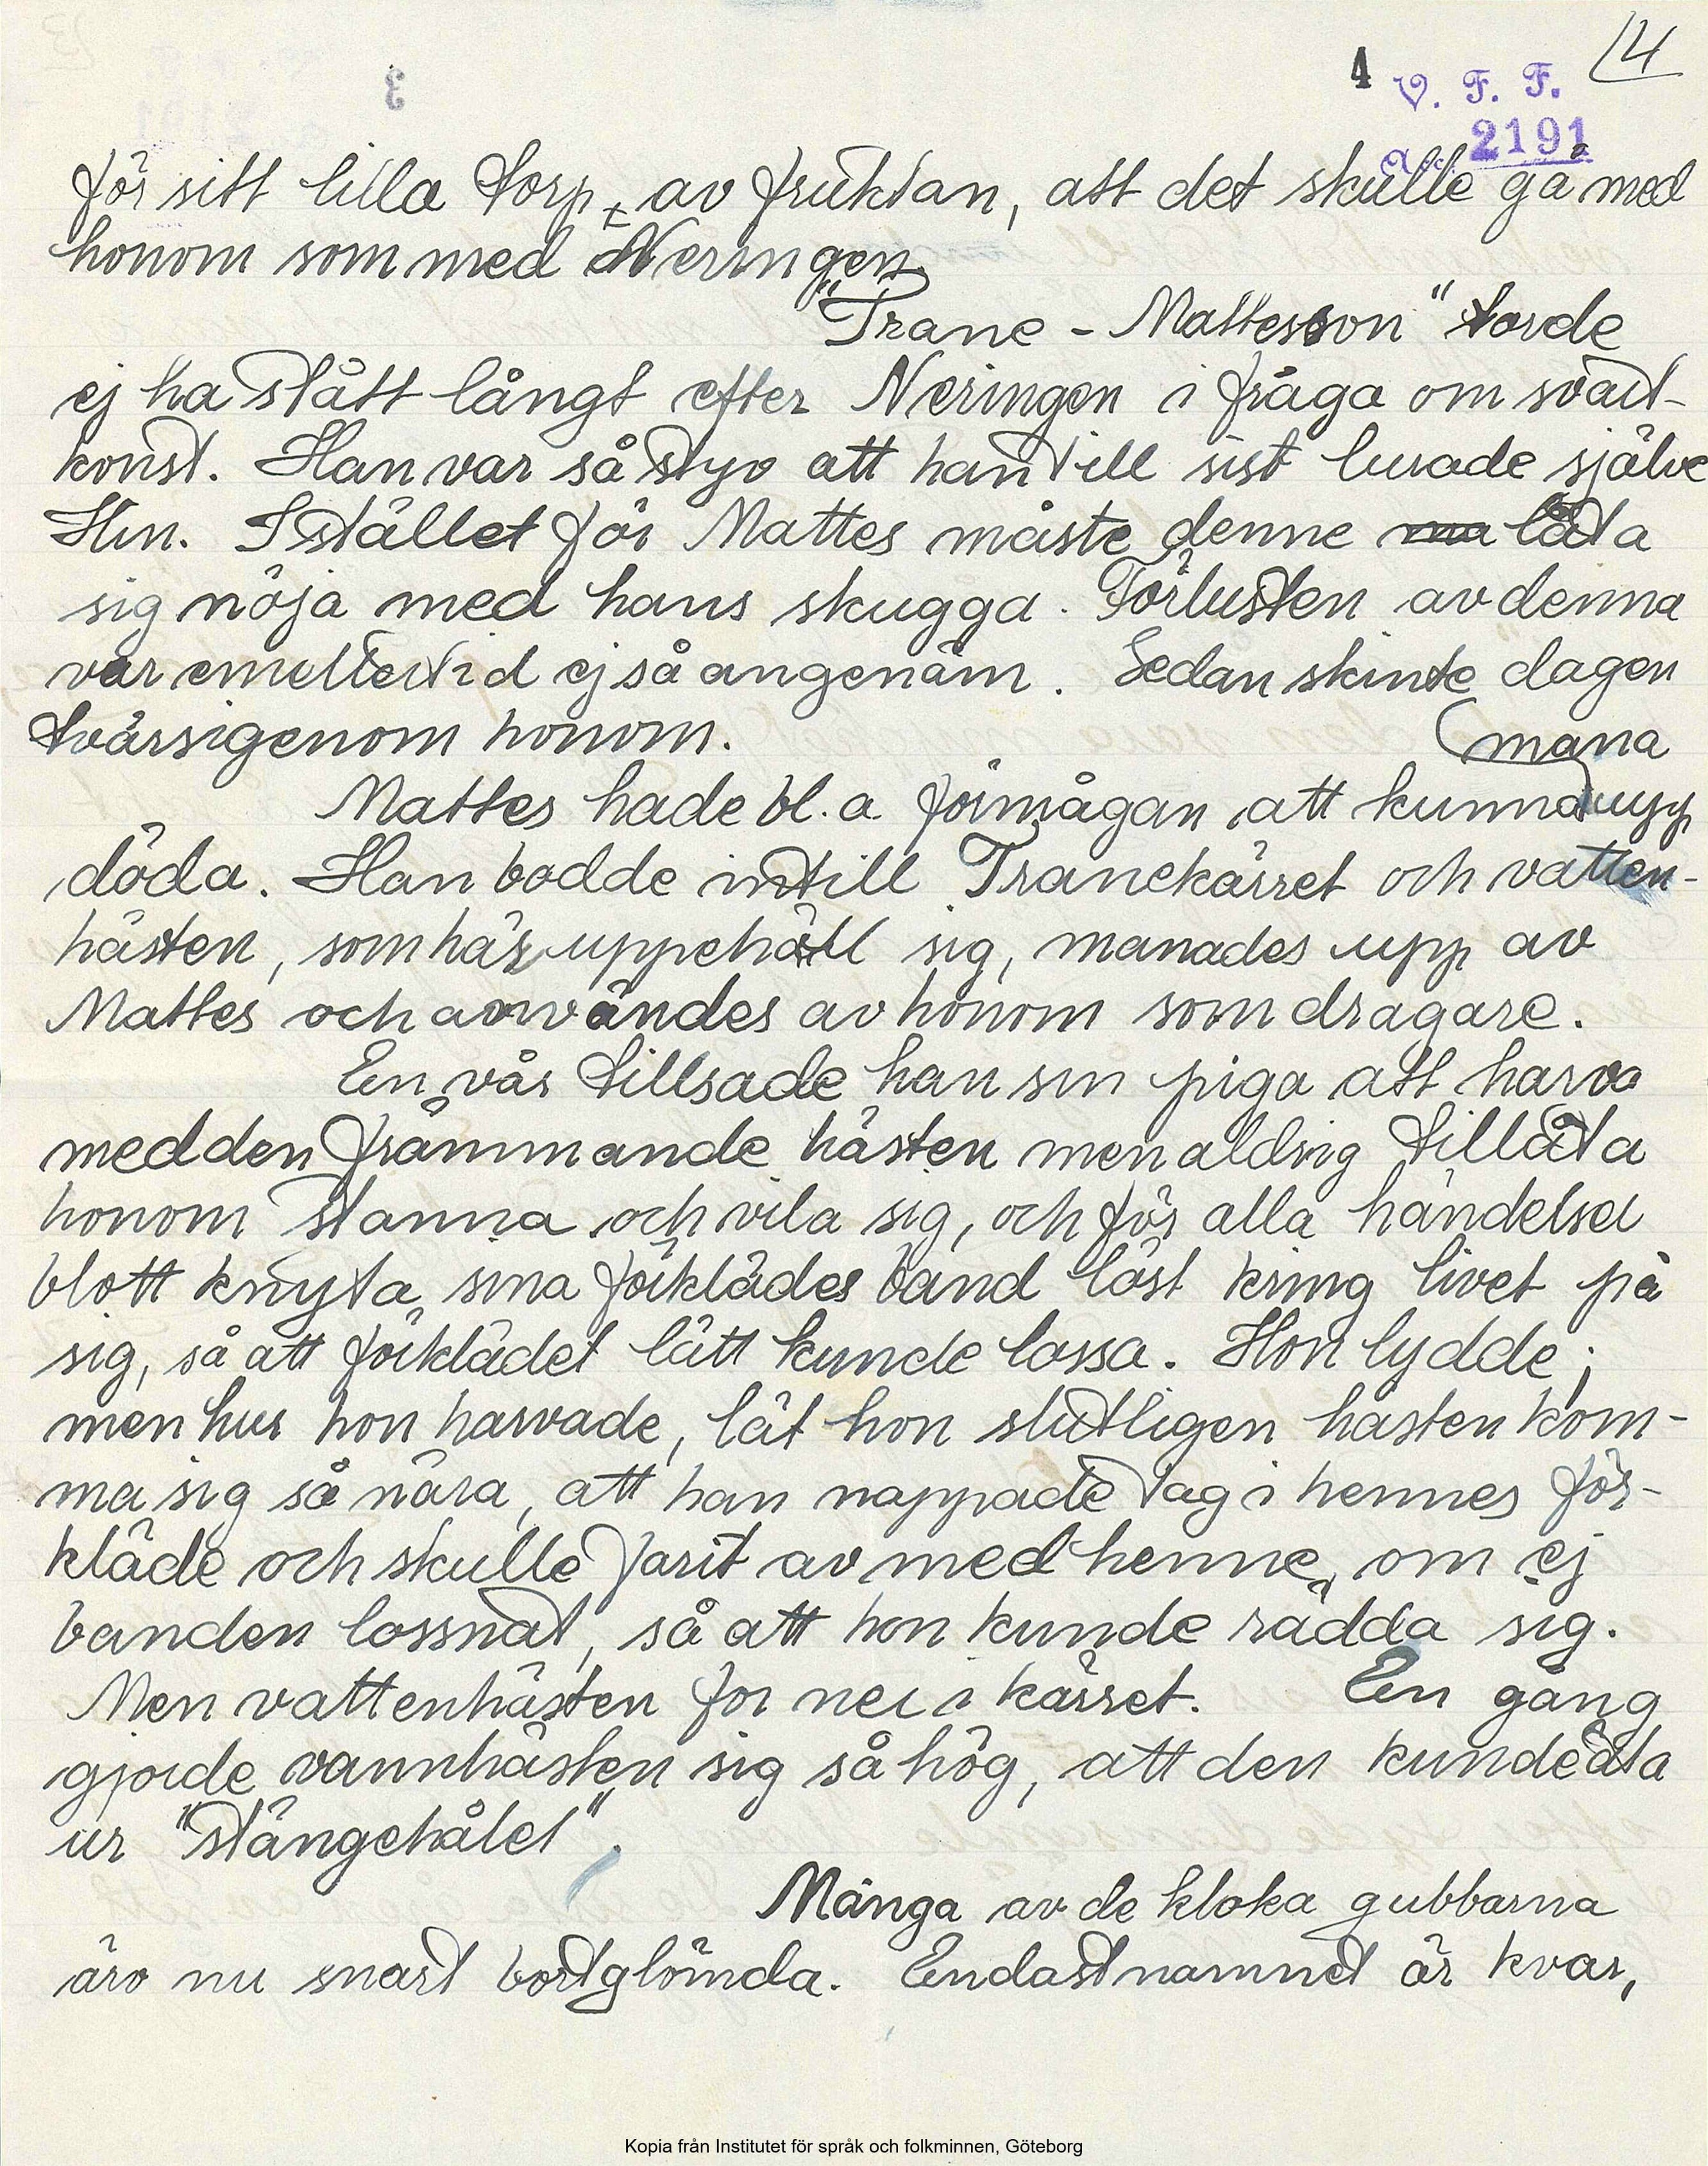 4
4
V. F. F.
2191
för sitt lilla torp, av fruktan, att det skulle gå med
honom som med Neringen.
"Trane - Mattesson" torde
ej ha stått långt efter Neringen i fråga om svart-
konst. Han var så styv att han till sist lurade själve
Hin. Istället för Mattes måste denne ma låta
sig nöja med hans skugga. Förlusten av denna
var emellertid ej så angenäm. Sedan skinte dagen
tvärsigenom honom.
Mattes hade bl. a förmågan att kunna mana upp
döda. Han bodde intill Tranekärret och vatten-
hästen, som här uppehöll sig, manades upp av
Mattes och användes av honom som dragare.
En vår tillsade han sin piga att harva
med den främmande hästen men aldrig tillåta
honom stanna och vila sig, och för alla händelser
blott knyta sina förklädes band löst kring livet på
sig, så att förklädet lätt kunde lossa. Hon lydde;
men hur hon harvade, lät hon slutligen hästen kom-
ma sig så nära, att han nappade tag i hennes för-
kläde och skulle farit av med henne, om ej
banden lossnat, så att hon kunde rädda sig.
Men vattenhästen for ner i kärret. En gång
gjorde vannhästen sig så hög, att den kunde äta
ur "stängehålet".
Många av de kloka gubbarna
äro nu snart bortglömda. Endast namnet är kvar,
Kopia från Institutet för språk och folkminnen, Göteborg